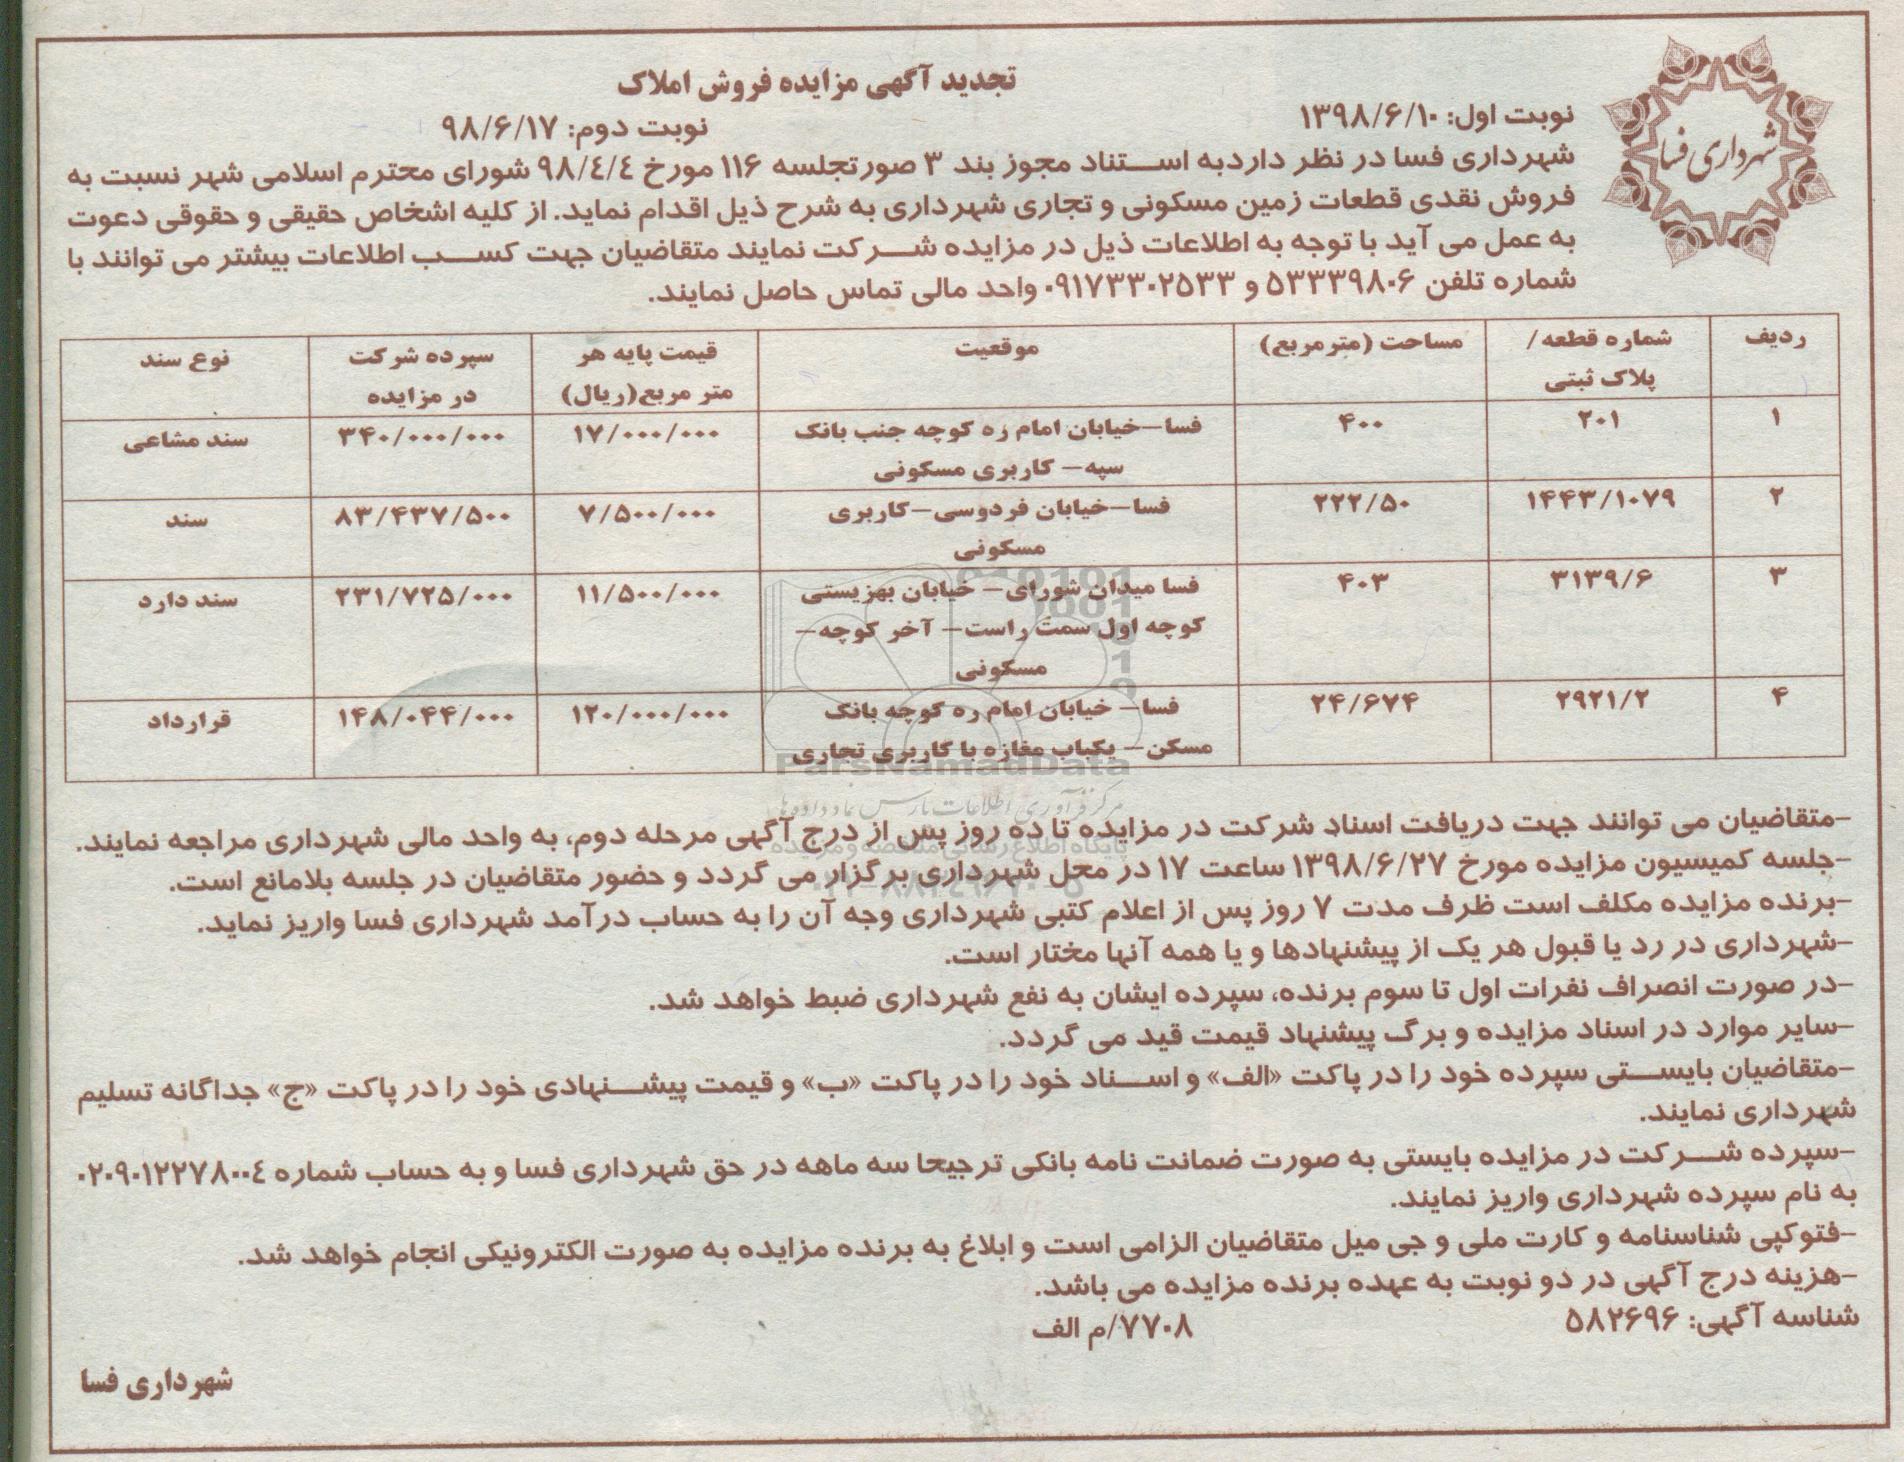 شهرداری فسا
تجدید آگهی مزایده فروش املاک
نوبت اول: ۱۳۹۸/۶/۱۰
نوبت دوم: ۹۸/۶/۱۷
شهرداری فسا در نظر داردبه استناد مجوز بند ۳ صورتجلسه ۱۱۶ مورخ ۹۸/٤/٤ شورای محترم اسلامی شهر نسبت به
فروش نقدی قطعات زمین مسکونی و تجاری شهرداری به شرح ذیل اقدام نماید. از کلیه اشخاص حقیقی و حقوقی دعوت
به عمل می آید با توجه به اطلاعات ذیل در مزایده شرکت نمایند متقاضیان جهت کسب اطلاعات بیشتر می توانند با
شماره تلفن ۵۳۳۳۹۸۰۶ و ۰۹۱۷۳۳۰۲۵۳۳ واحد مالی تماس حاصل نمایند.
ردیف | شماره قطعه/ پلاک ثبتی | مساحت (مترمربع) | موقعیت | قیمت پایه هر متر مربع(ریال) | سپرده شرکت در مزایده | نوع سند
۱ | ۲۰۱ | ۴۰۰ | فسا–خیابان امام ره کوچه جنب بانک سپه– کاربری مسکونی | ۱۷/۰۰۰/۰۰۰ | ۳۴۰/۰۰۰/۰۰۰ | سند مشاعی
۲ | ۱۴۴۳/۱۰۷۹ | ۲۲۲/۵۰ | فسا–خیابان فردوسی–کاربری مسکونی | ۷/۵۰۰/۰۰۰ | ۸۳/۴۳۷/۵۰۰ | سند
۳ | ۳۱۳۹/۶ | ۴۰۳ | فسا میدان شورای– خیابان بهزیستی کوچه اول سمت راست– آخر کوچه– مسکونی | ۱۱/۵۰۰/۰۰۰ | ۲۳۱/۷۲۵/۰۰۰ | سند دارد
۴ | ۲۹۲۱/۲ | ۲۴/۶۷۴ | فسا– خیابان امام ره کوچه بانک مسکن– یکباب مغازه با کاربری تجاری | ۱۲۰/۰۰۰/۰۰۰ | ۱۴۸/۰۴۴/۰۰۰ | قرارداد
ParsNamadData
مرکز فرآوری اطلاعات پارس نماد داده‌ها
پایگاه اطلاع رسانی مناقصه و مزایده
-متقاضیان می توانند جهت دریافت اسناد شرکت در مزایده تا ده روز پس از درج آگهی مرحله دوم، به واحد مالی شهرداری مراجعه نمایند.
-جلسه کمیسیون مزایده مورخ ۱۳۹۸/۶/۲۷ ساعت ۱۷ در محل شهرداری برگزار می گردد و حضور متقاضیان در جلسه بلامانع است.
-برنده مزایده مکلف است ظرف مدت ۷ روز پس از اعلام کتبی شهرداری وجه آن را به حساب درآمد شهرداری فسا واریز نماید.
-شهرداری در رد یا قبول هر یک از پیشنهادها و یا همه آنها مختار است.
-در صورت انصراف نفرات اول تا سوم برنده، سپرده ایشان به نفع شهرداری ضبط خواهد شد.
-سایر موارد در اسناد مزایده و برگ پیشنهاد قیمت قید می گردد.
-متقاضیان بایستی سپرده خود را در پاکت «الف» و اسناد خود را در پاکت «ب» و قیمت پیشنهادی خود را در پاکت «ج» جداگانه تسلیم
شهرداری نمایند.
-سپرده شرکت در مزایده بایستی به صورت ضمانت نامه بانکی ترجیحا سه ماهه در حق شهرداری فسا و به حساب شماره ۰۲۰۹۰۱۲۲۷۸۰۰٤
به نام سپرده شهرداری واریز نمایند.
-فتوکپی شناسنامه و کارت ملی و جی میل متقاضیان الزامی است و ابلاغ به برنده مزایده به صورت الکترونیکی انجام خواهد شد.
-هزینه درج آگهی در دو نوبت به عهده برنده مزایده می باشد.
شناسه آگهی: ۵۸۲۶۹۶
۷۷۰۸/م الف
شهرداری فسا